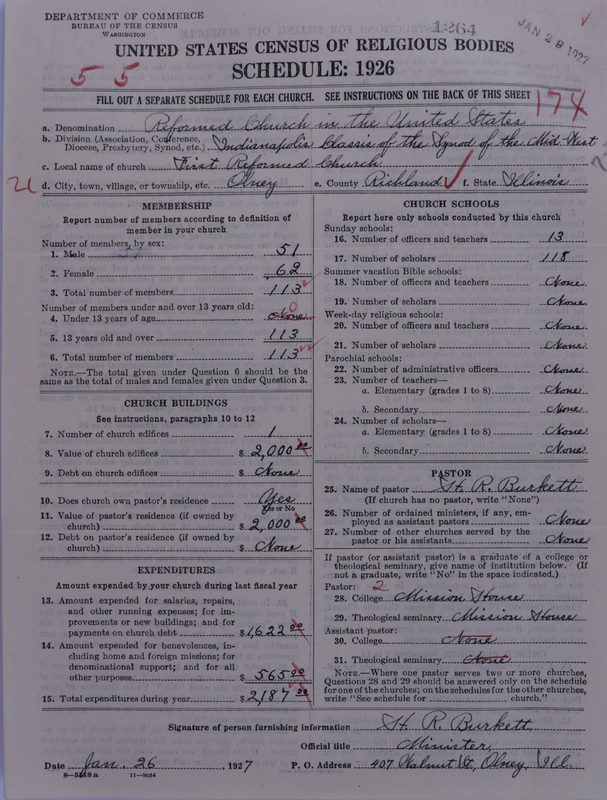 DEPARTMENT OF COMMERCE
BUREAU OF THE CENSUS
WASHINGTON
1264
JAN 28 1927
UNITED STATES CENSUS OF RELIGIOUS BODIES
SCHEDULE: 1926
5 5
FILL OUT A SEPARATE SCHEDULE FOR EACH CHURCH. SEE INSTRUCTIONS ON THE BACK OF THIS SHEET
174
a. Denomination Reformed Church in the United States
b. Division (Association, Conference, Diocese, Presbytery, Synod, etc.) Indianapolis Classis of the Synod of the Mid-West
c. Local name of church First Reformed Church
d. City, town, village, or township, etc. Olney e. County Richland f. State Illinois
MEMBERSHIP
Report number of members according to definition of
member in your church
Number of members, by sex:
1. Male 51
2. Female 62
3. Total number of members 113
Number of members under and over 13 years old:
4. Under 13 years of age None 0
5. 13 years old and over 113
6. Total number of members 113
NOTE.—The total given under Question 6 should be
same as the total of males and females given under Question 3.
CHURCH BUILDINGS
See instructions, paragraphs 10 to 12
7. Number of church edifices 1
8. Value of church edifices $ 2,000 00
9. Debt on church edifices $ None
10. Does church own pastor's residence Yes
Yes or No
11. Value of pastor's residence (if owned by
church) $ 2,000 00
12. Debt on pastor's residence (if owned by
church) $ None
EXPENDITURES
Amount expended by your church during last fiscal year
13. Amount expended for salaries, repairs,
and other running expenses; for im-
provements or new buildings; and for
payments on church debt $ 1,622 00
14. Amount expended for benevolences, in-
cluding home and foreign missions; for
denominational support; and for all
other purposes $ 565 00
15. Total expenditures during year $ 2187 00
CHURCH SCHOOLS
Report here only schools conducted by this church
Sunday schools:
16. Number of officers and teachers 13
17. Number of scholars 118
Summer vacation Bible schools:
18. Number of officers and teachers None
19. Number of scholars None
Week-day religious schools:
20. Number of officers and teachers None
21. Number of scholars None
Parochial schools:
22. Number of administrative officers None
23. Number of teachers—
a. Elementary (grades 1 to 8) None
b. Secondary None
24. Number of scholars—
a. Elementary (grades 1 to 8) None
b. Secondary None
PASTOR
25. Name of pastor H. R. Burkett
(If church has no pastor, write "None")
26. Number of ordained ministers, if any, em-
ployed as assistant pastors None
27. Number of other churches served by the
pastor or his assistants None
If pastor (or assistant pastor) is a graduate of a college or
theological seminary, give name of institution below. (If
not a graduate, write "No" in the space indicated.)
Pastor: 2
28. College Mission House
29. Theological seminary Mission House
Assistant pastor:
30. College None
31. Theological seminary None
NOTE.—Where one pastor serves two or more churches,
Questions 28 and 29 should be answered only on the schedule
for one of the churches; on the schedules for the other churches,
write "See schedule for church."
Signature of person furnishing information H. R. Burkett
Official title Minister
Date Jan. 26, 1927 P. O. Address 407 Walnut St, Olney, Ill.
8—5418 a 11—9034